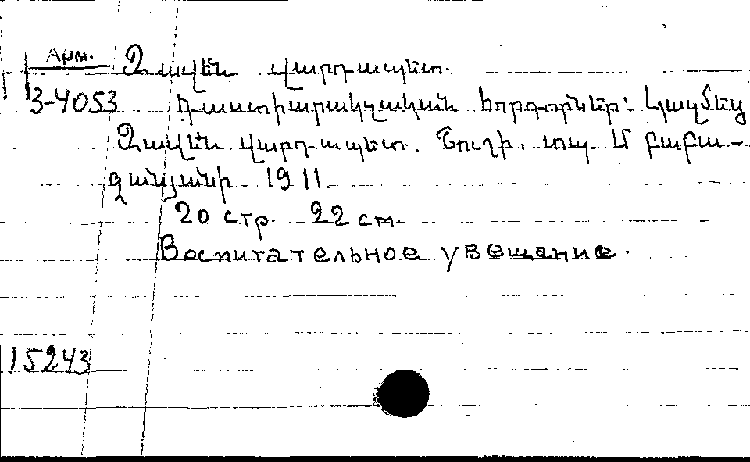 Арм.
Զավեն վարդապետ.
3-4053 Դաստիարակչական խորհրդներ: Կազմեց
Զավեն վարդապետ. Շուշի. տպ. Մ բաբա-
ջանյանի 1911
20 стр. 22 см.
Воспитательное увещание.
15243